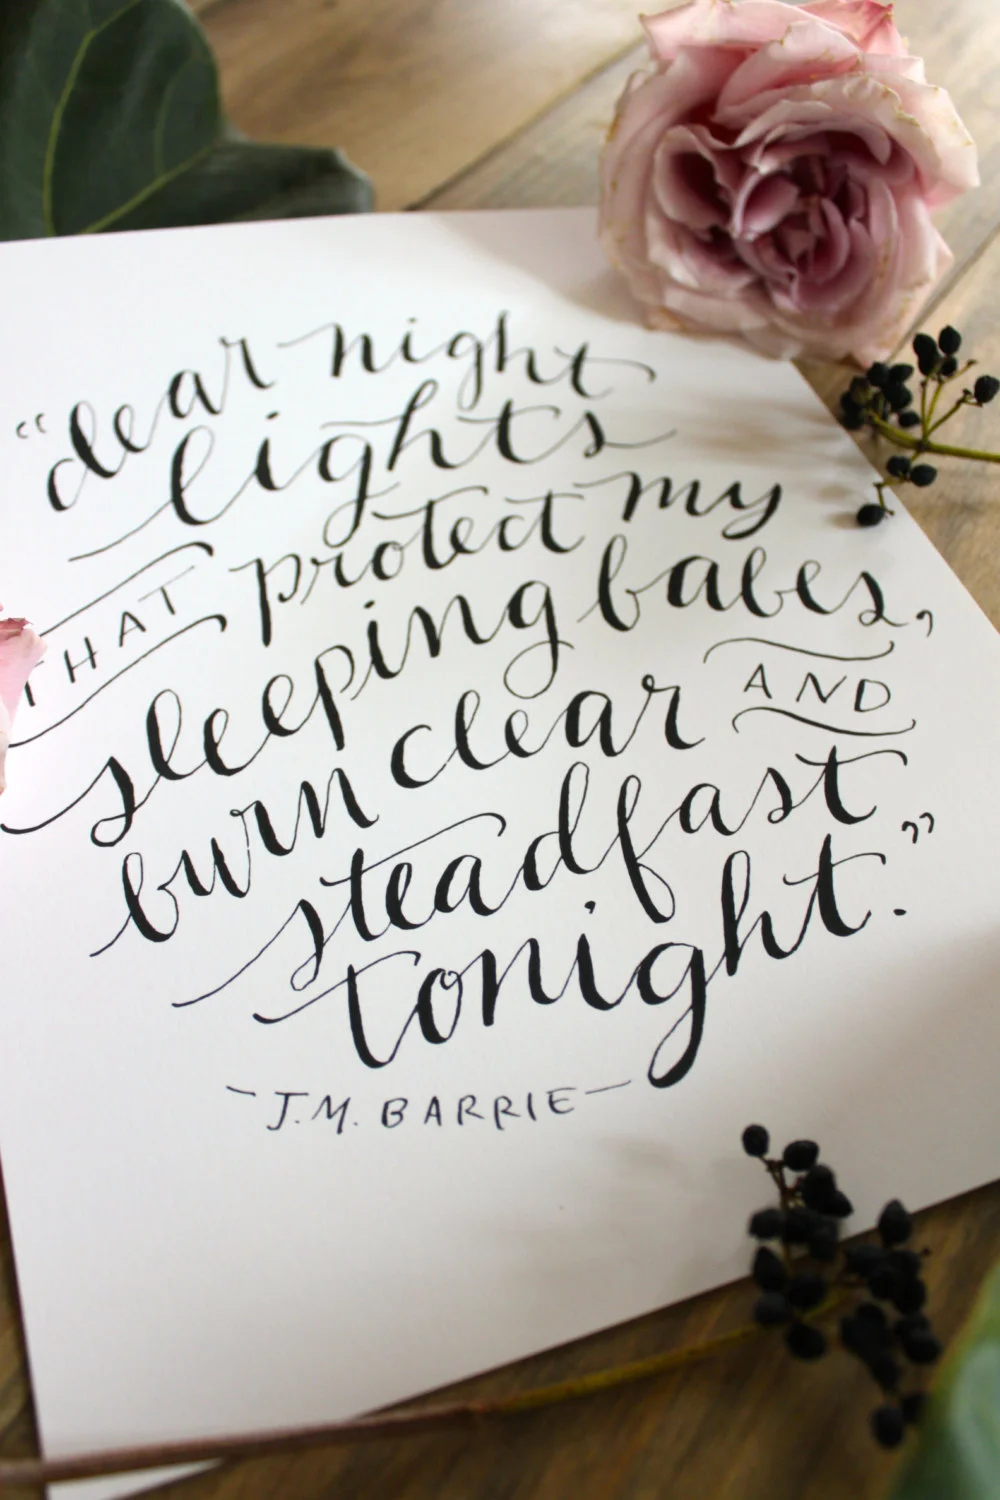 “dear night
lights
THAT protect my
sleeping babes,
burn clear AND
steadfast
tonight.”
- J.M. BARRIE -